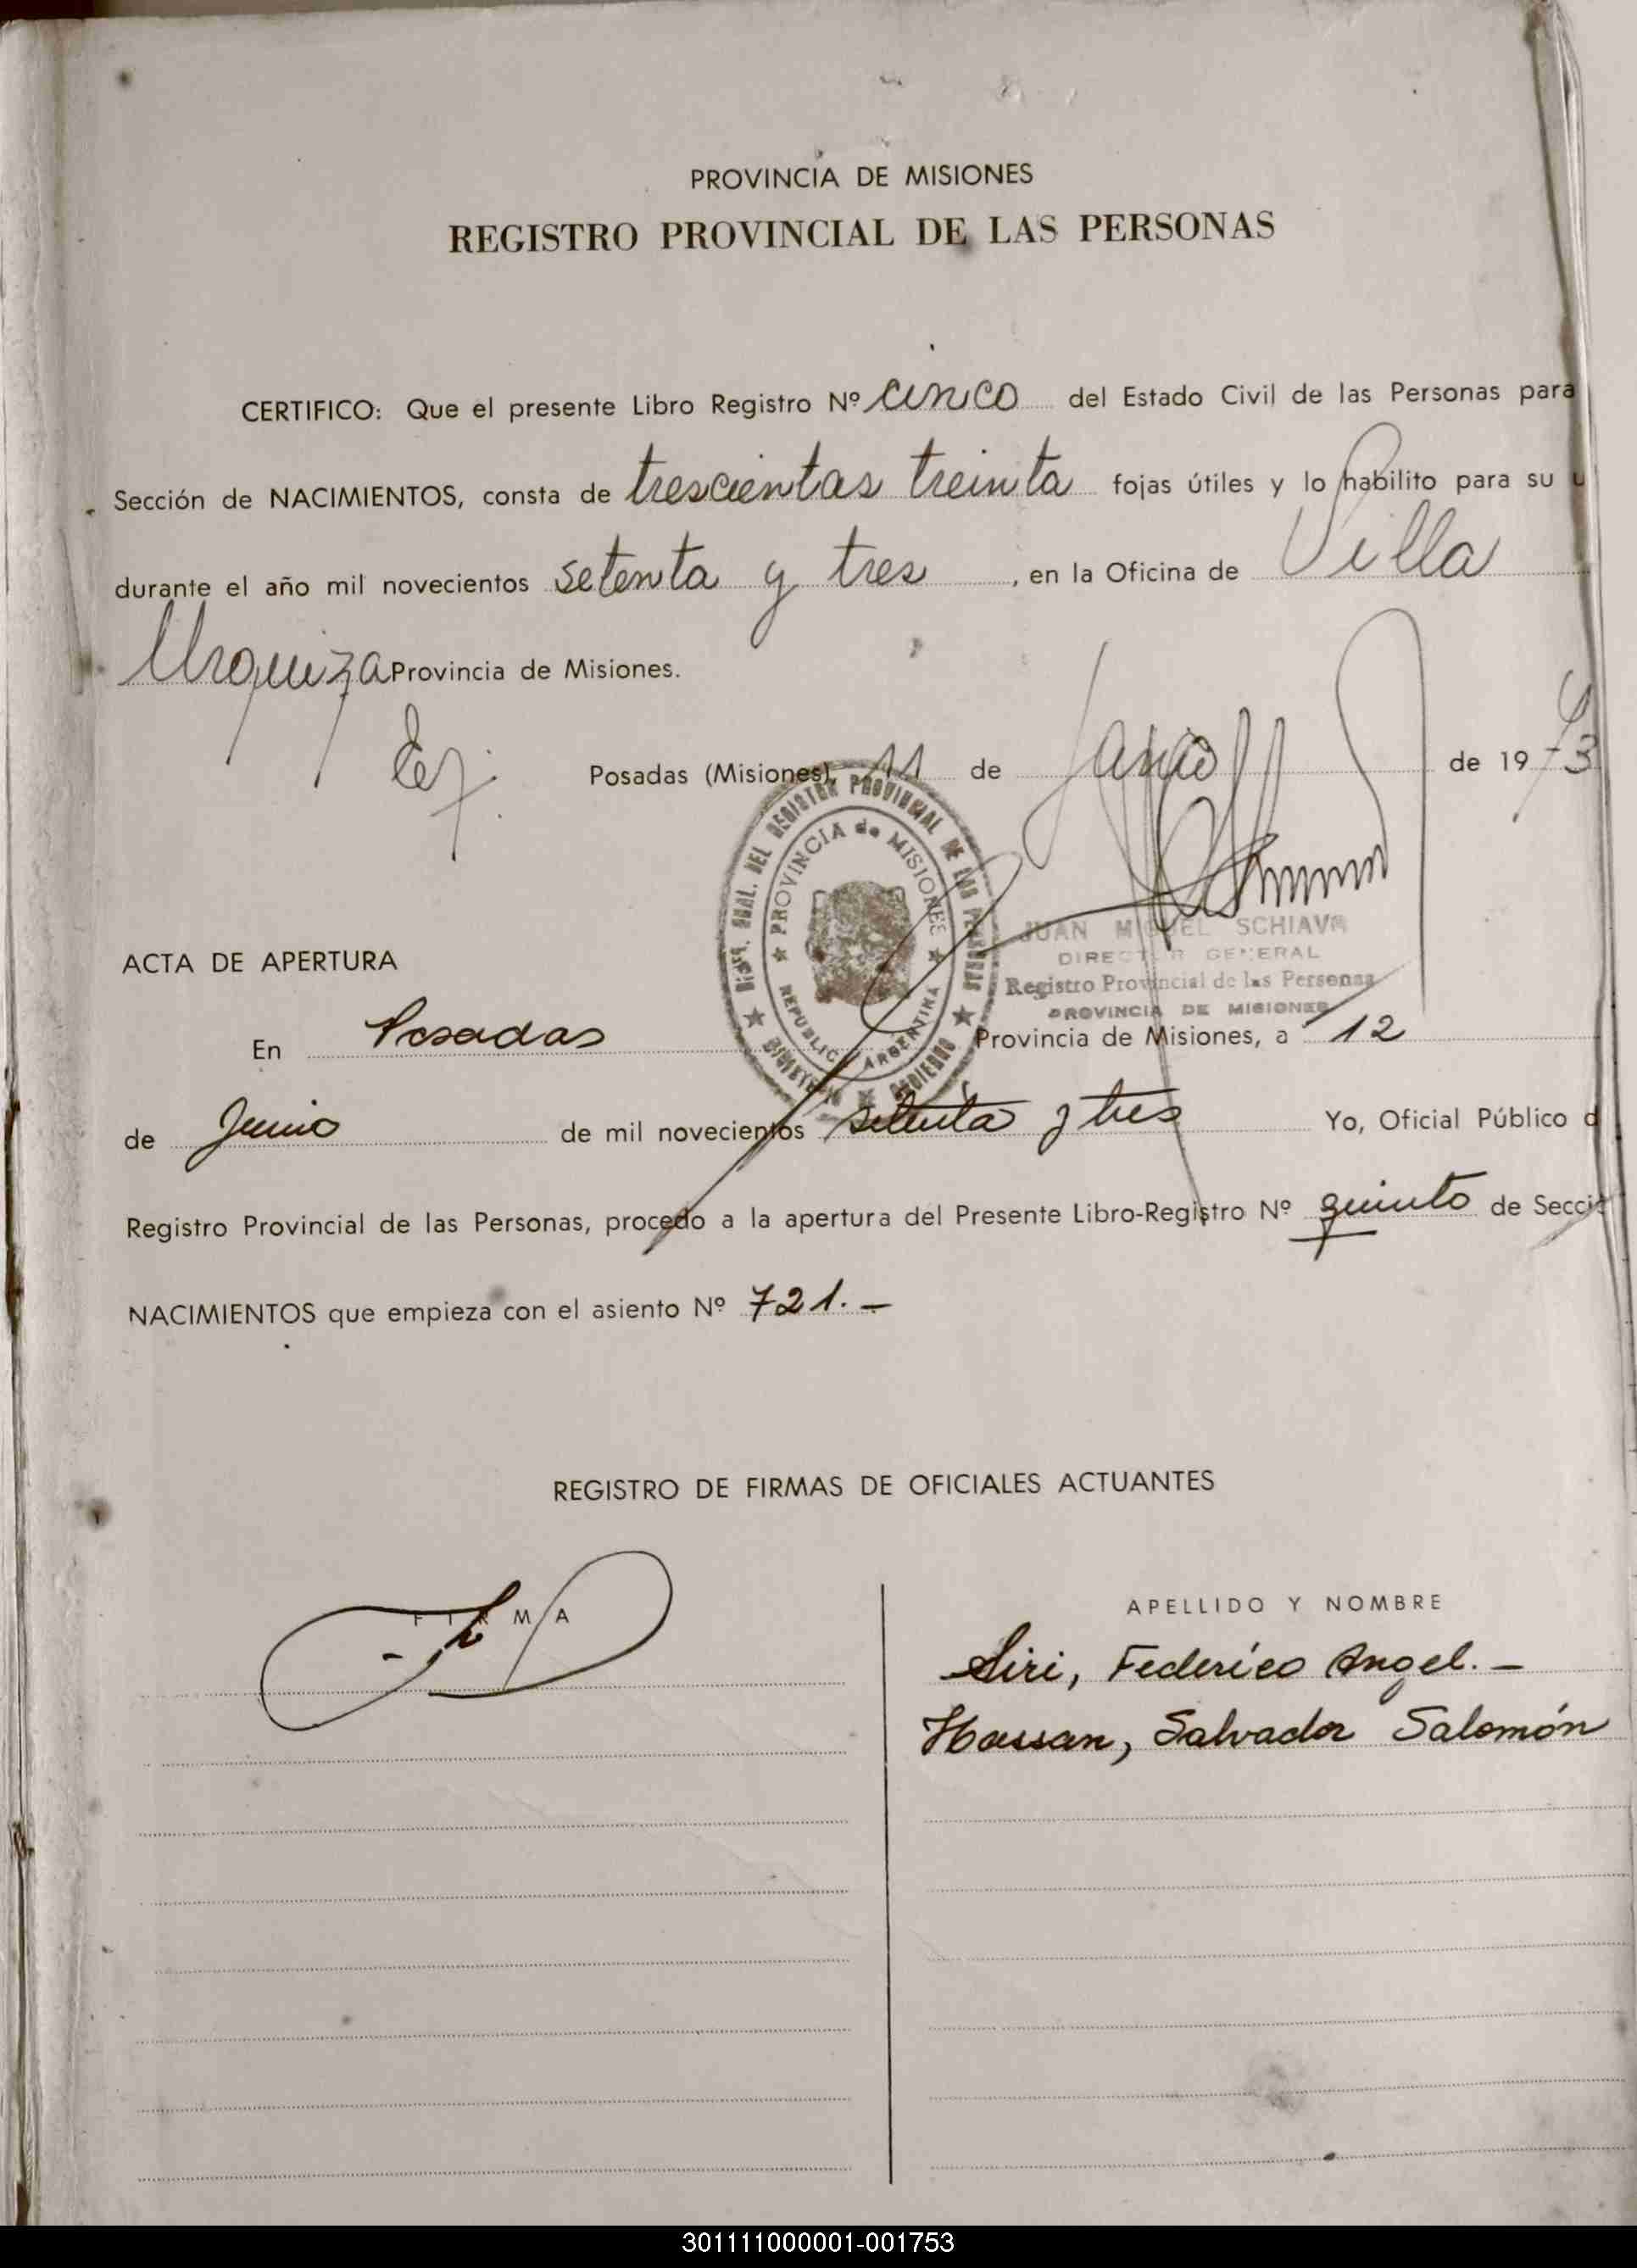 PROVINCIA DE MISIONES
REGISTRO PROVINCIAL DE LAS PERSONAS
CERTIFICO: Que el presente Libro Registro Nº cinco del Estado Civil de las Personas para
Sección de NACIMIENTOS, consta de trescientas treinta fojas útiles y lo habilito para su u
durante el año mil novecientos setenta y tres, en la Oficina de Villa
Urquiza Provincia de Misiones.
Posadas (Misiones), 11 de Junio de 1973
DIRECTOR GENERAL
Registro Provincial de las Personas
PROVINCIA DE MISIONES
PROVINCIA de MISIONES
REPUBLICA ARGENTINA
ACTA DE APERTURA
En Posadas Provincia de Misiones, a 12
de Junio de mil novecientos setenta y tres Yo, Oficial Público d
Registro Provincial de las Personas, procedo a la apertura del Presente Libro-Registro Nº quinto de Secció
NACIMIENTOS que empieza con el asiento Nº 721.-
REGISTRO DE FIRMAS DE OFICIALES ACTUANTES
FIRMA
APELLIDO Y NOMBRE
Siri, Federico Angel.-
Hassan, Salvador Salomón
301111000001-001753